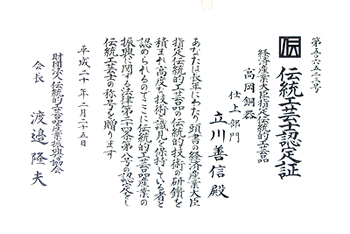 第五六五三六号
伝統工芸士認定証
経済産業大臣指定伝統的工芸品
高岡銅器
仕上部門
立川善信殿
あなたは長年にわたり頭書の経済産業大臣
指定伝統的工芸品の伝統的技術の研鑽を
積まれ高度な技術・識見を保持している者と
認められるのでここに伝統的工芸品産業の
振興に関する法律第二十四条第八号の認定をし
伝統工芸士の称号を贈ります
平成二十年二月二十五日
財団法人伝統的工芸品産業振興協会
会長 渡邉隆夫